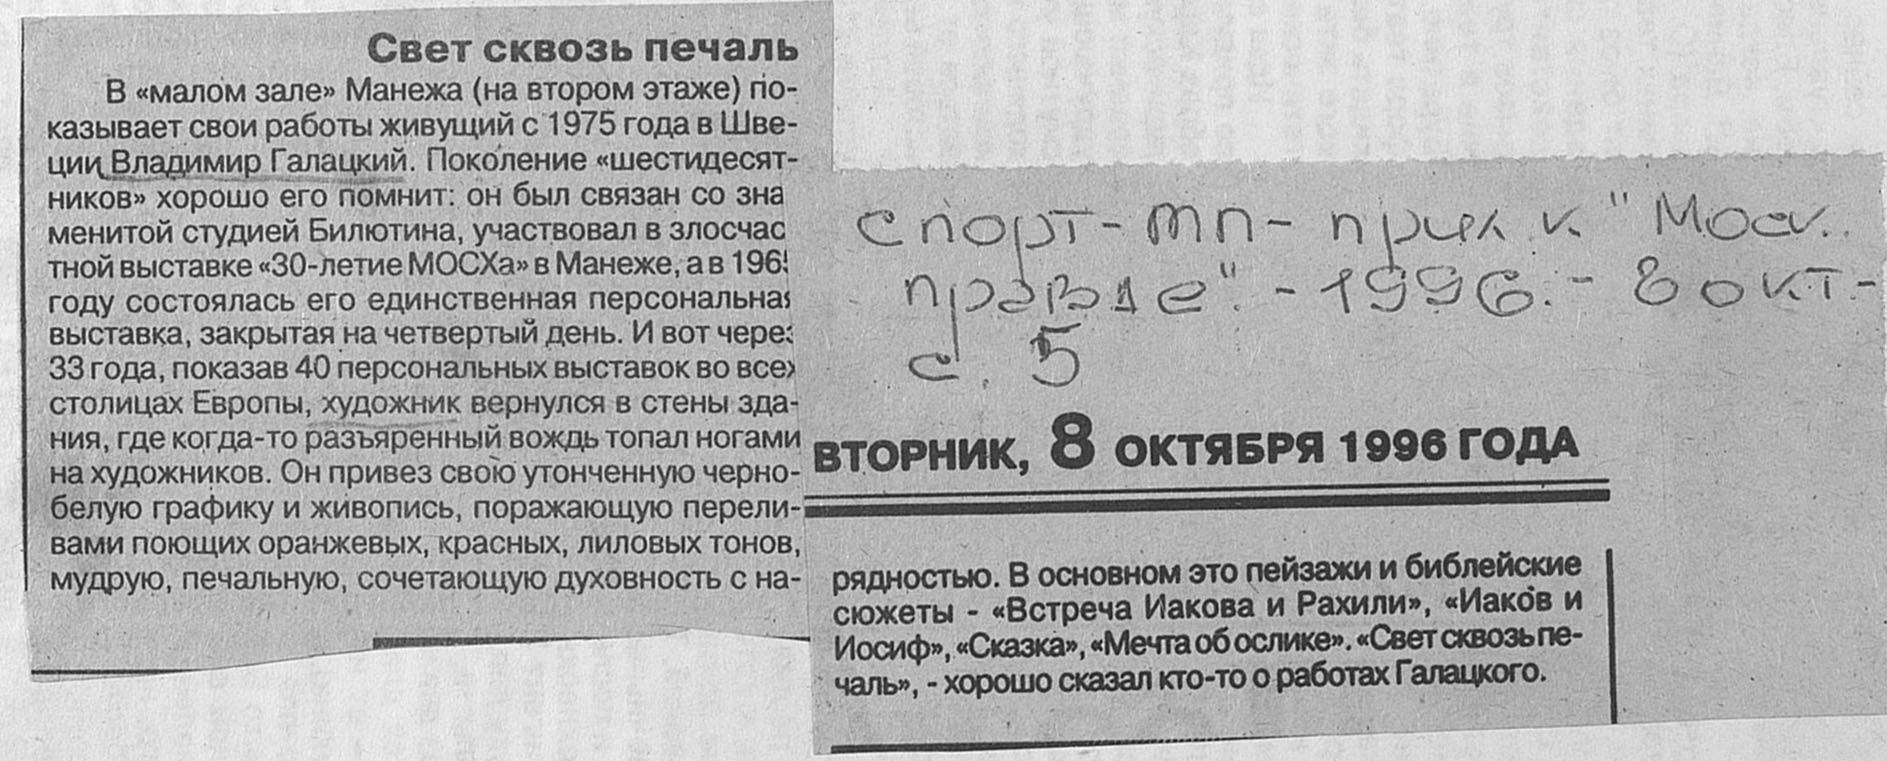 Свет сквозь печаль
В «малом зале» Манежа (на втором этаже) по-
казывает свои работы живущий с 1975 года в Шве-
ции Владимир Галацкий. Поколение «шестидесят-
ников» хорошо его помнит: он был связан со зна
менитой студией Билютина, участвовал в злосчас
тной выставке «30-летие МОСХа» в Манеже, а в 196
году состоялась его единственная персональная
выставка, закрытая на четвертый день. И вот через
33 года, показав 40 персональных выставок во всех
столицах Европы, художник вернулся в стены зда-
ния, где когда-то разъяренный вождь топал ногами
на художников. Он привез свою утонченную черно-
белую графику и живопись, поражающую перели-
вами поющих оранжевых, красных, лиловых тонов,
мудрую, печальную, сочетающую духовность с на-
спорт-мп- прил. к "Моск.
правде". - 1996. - 8 окт -
с. 5
ВТОРНИК, 8 ОКТЯБРЯ 1996 ГОДА
рядностью. В основном это пейзажи и библейские
сюжеты - «Встреча Иакова и Рахили», «Иаков и
Иосиф», «Сказка», «Мечта об ослике». «Свет сквозь пе-
чаль», - хорошо сказал кто-то о работах Галацкого.